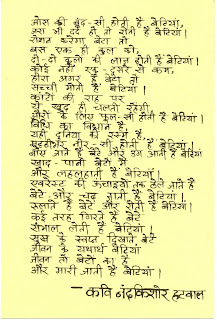 ओस की बूंद-सी होती हैं बेटियां,
ज़रा भी दर्द हो तो रोती हैं बेटियां।
रोशन करेगा बेटा तो
बस एक ही कुल को,
दो-दो कुलों की लाज होती हैं बेटियां।
कोई नहीं एक-दूसरे से कम,
हीरा अगर है बेटा तो
सच्चा मोती हैं बेटियां।
कांटों की राह पर
ये खुद ही चलती रहेंगी,
औरों के लिए फूल-सी होती हैं बेटियां।
विधि का विधान है
यही दुनिया की रस्म है,
मुट्ठीभर नीर-सी होती हैं बेटियां।
बोए जाते हैं बेटे और उग आती हैं बेटियां
खाद-पानी बेटों में
और लहलहाती हैं बेटियां।
एवरेस्ट की ऊंचाइयों तक ठेले जाते हैं
बेटे और चढ़ जाती हैं बेटियां।
रुलाते हैं बेटे और रोती हैं बेटियां।
कई तरह गिरते हैं बेटे
संभाल लेती हैं बेटियां।
सुख के स्वप्न दिखाते बेटे
जीवन का यथार्थ बेटियां
जीवन तो बेटों का है
और मारी जाती हैं बेटियां।
- कवि नंदकिशोर हटवाल